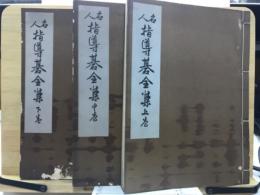 名人指導碁全集上卷
名人指導碁全集中卷
名人指導碁全集下卷